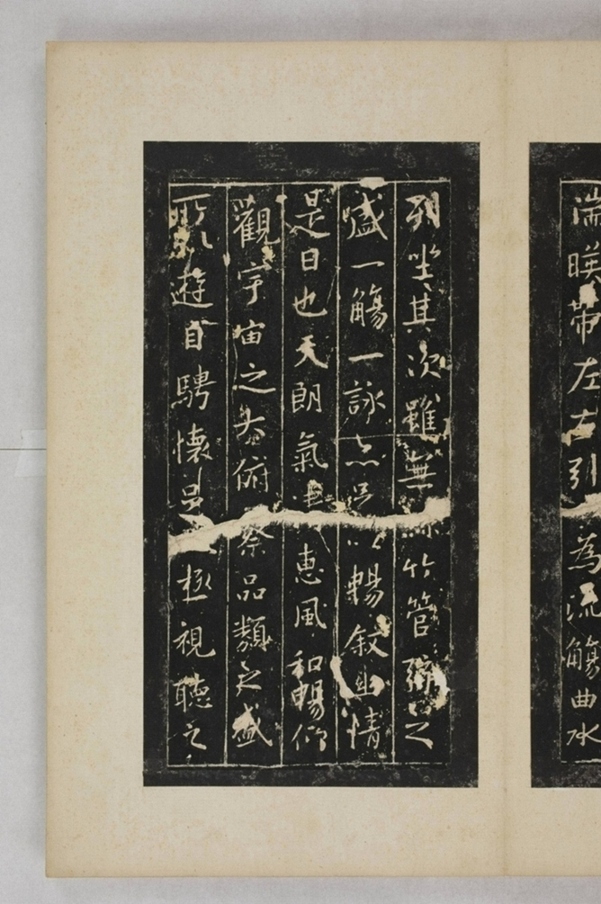 湍暎帶左右引為流觴曲水
列坐其次雖無絲竹管弦之
盛一觴一詠亦足以暢敘幽情
是日也天朗氣清惠風和暢仰
觀宇宙之大俯察品類之盛
所以遊目騁懷足極視聽之